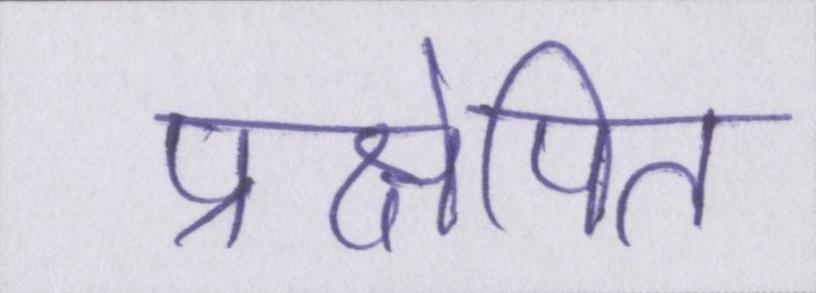 प्रक्षेपित